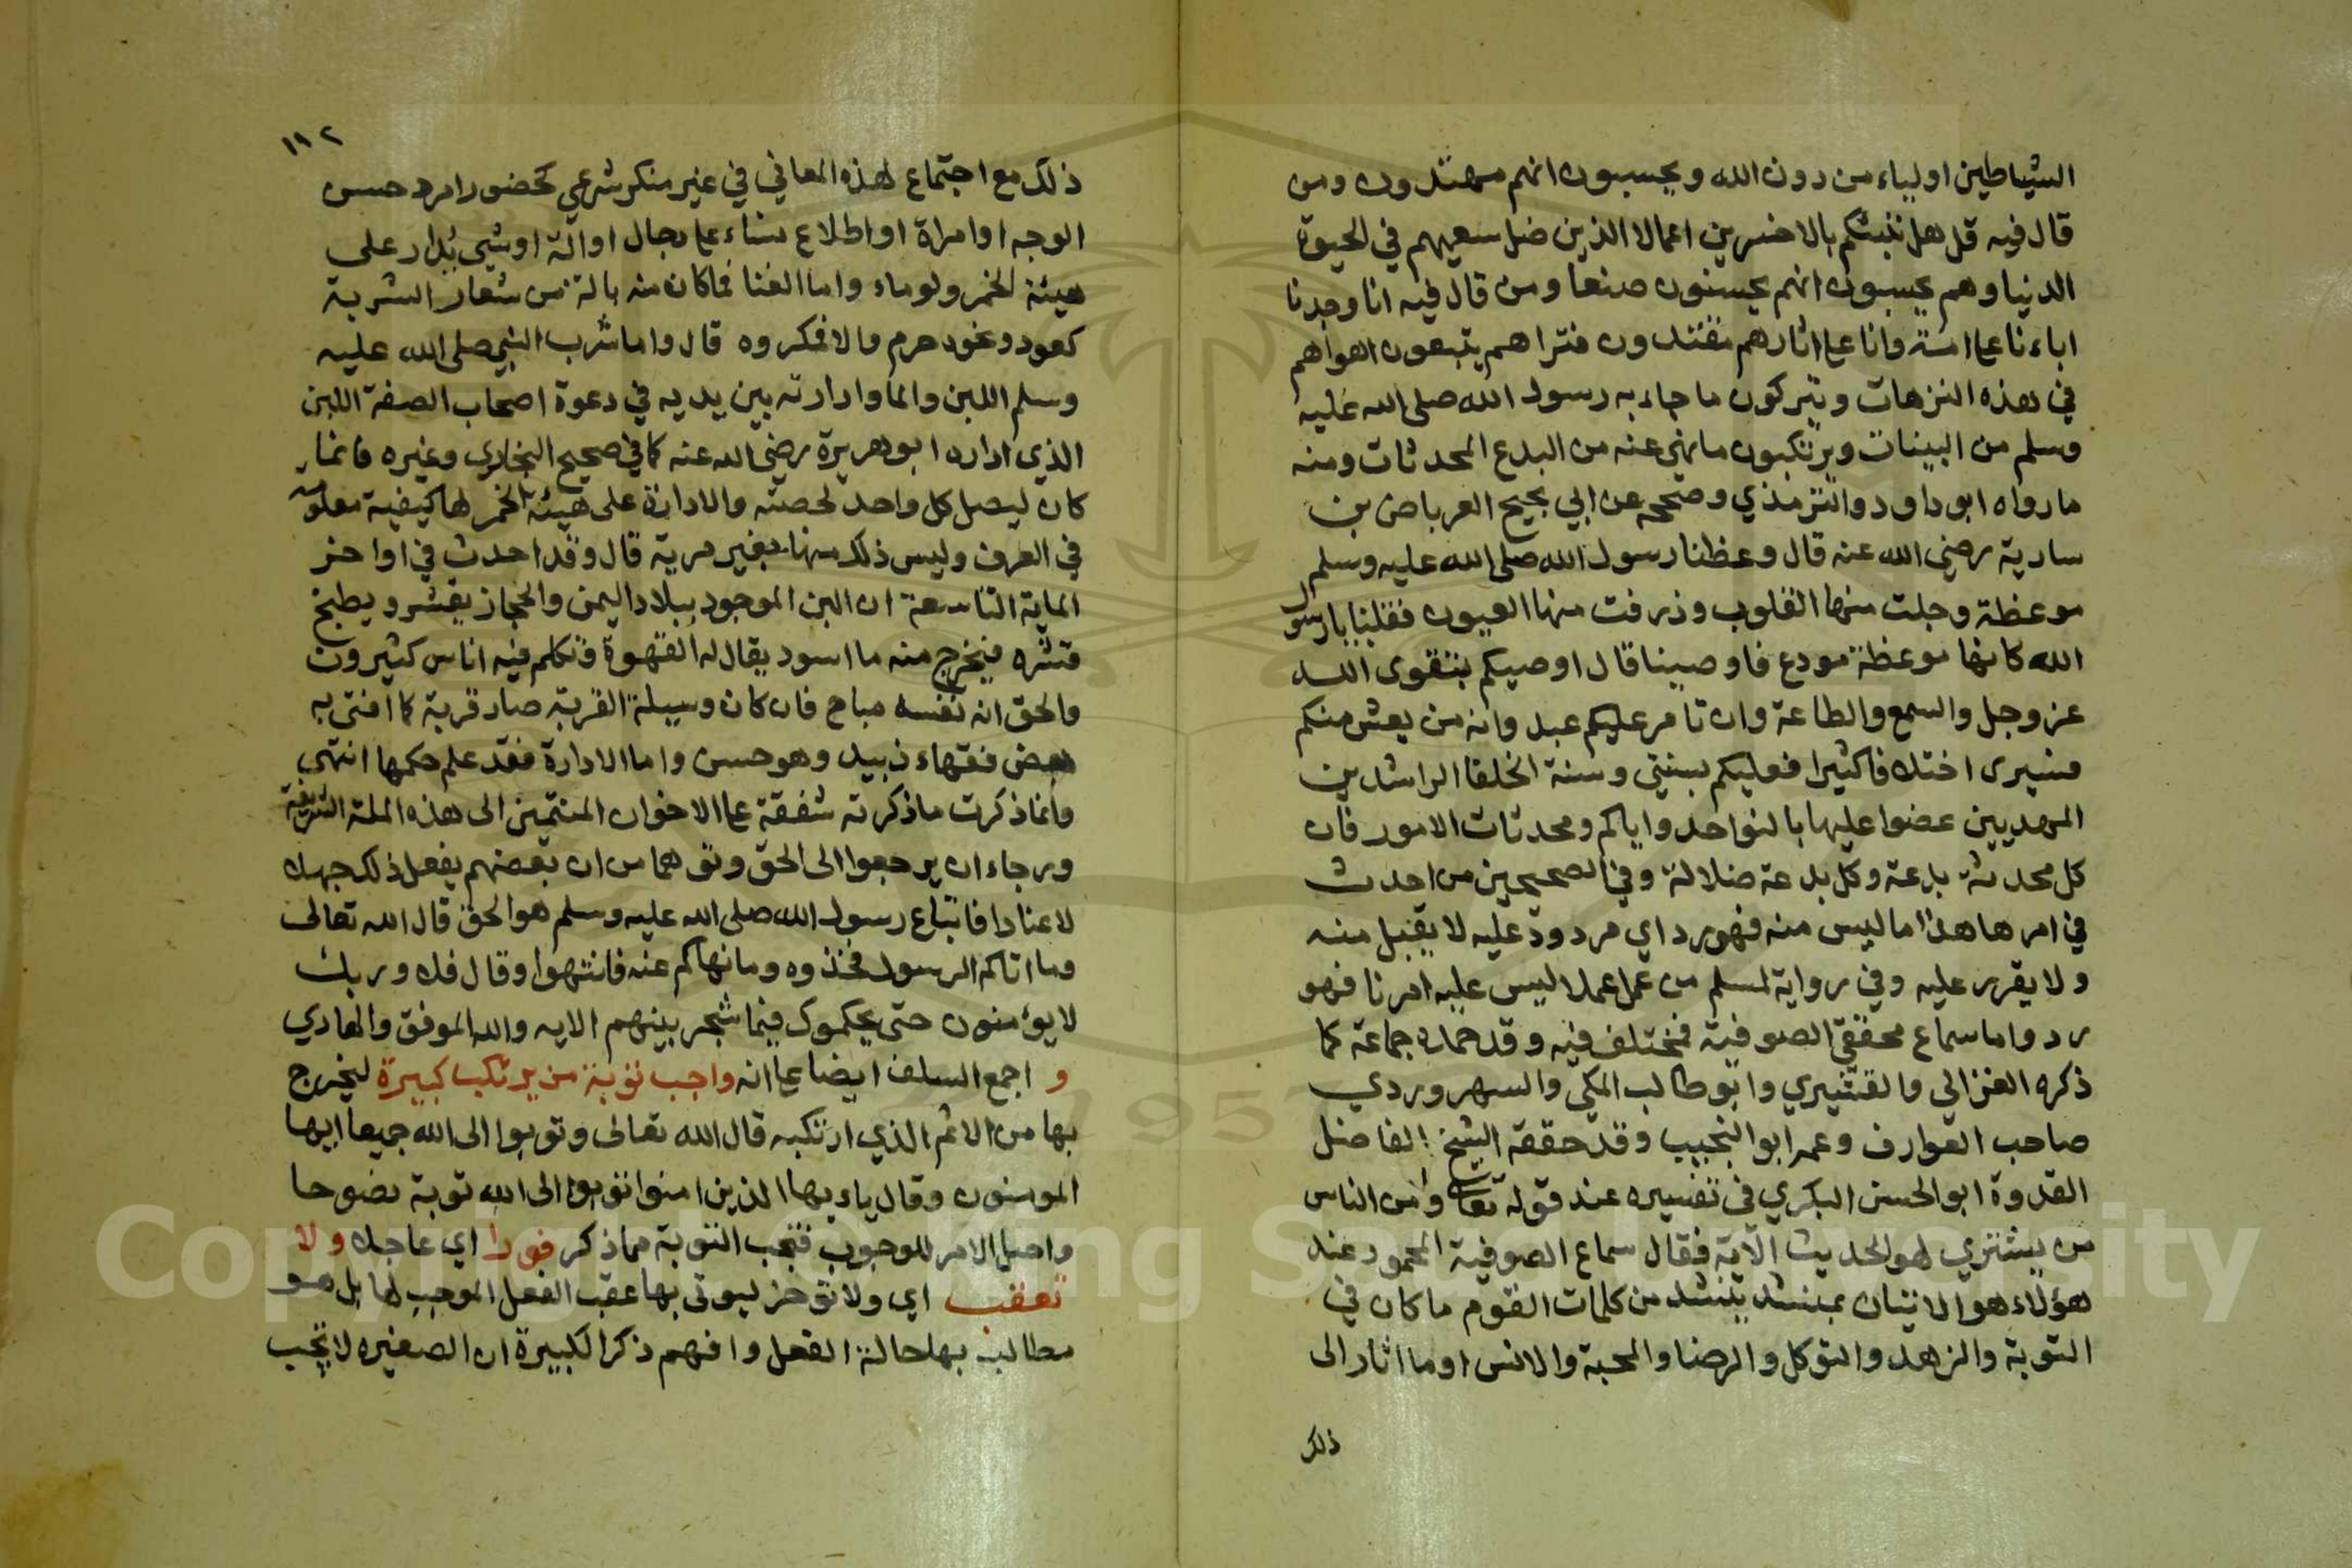 الشياطين اولياء من دون الله ويحسبون انهم مهتدون ومن
قال فيه قل هل ننبئكم بالاخسرين اعمالا الذين ضل سعيهم في الحيوة
الدنيا وهم يحسبون انهم يحسنون صنعا ومن قال فيه انا وجدنا
اباءنا على امة وانا على اثارهم مقتدون فتراهم يتبعون اهواهم
في هذه النزهات ويتركون ما جاء به رسول الله صلى الله عليه
وسلم من البينات ويرتكبون ما نهي عنه من البدع المحدثات ومنه
ما رواه ابو داود والترمذي وصححه عن ابي نجيح العرباض بن
سارية رضي الله عنه قال وعظنا رسول الله صلى الله عليه وسلم
موعظة وجلت منها القلوب وذرفت منها العيون فقلنا يا رسول
الله كانها موعظة مودع فاوصينا قال اوصيكم بتقوى الله
عز وجل والسمع والطاعة وان تامر عليكم عبد وانه من يعش منكم
فسيرى اختلافا كثيرا فعليكم بسنتي وسنة الخلفا الراشدين
المهديين عضوا عليها بالنواجد واياكم ومحدثات الامور فان
كل محدثة بدعة وكل بدعة ضلالة وفي الصحيحين من احدث
في امرها هذا ما ليس منه فهو رد اي مردود عليه لا يقبل منه
ولا يقرر عليه وفي رواية لمسلم من عمل عملا ليس عليه امرنا فهو
رد واما سماع محققي الصوفية فمختلف فيه وقد حمله جماعة كما
ذكره الغزالي والقشيري وابو طالب المكي والسهروردي
صاحب العوارف وعمه ابو النجيب وقد حققه الشيخ الفاضل
القدوة ابو الحسن البكري في تفسيره عند قوله تعالى ومن الناس
من يشتري لهو الحديث الآية فقال سماع الصوفية المحمود عند
هؤلاء هو الاتيان بمنشد ينشد من كلمات القوم ما كان في
التوبة والزهد والتوكل والرضا والمحبة والانس او ما اثار الى
ذلك
١٨٢
ذلك مع اجتماع لهذه المعاني في غير منكر شرعي كحضور امرد حسن
الوجه او امراة او اطلاع نساء على رجال او آلة او شي يدار على
هيئة الخمر ولو ماء واما الغنا فما كان منه بالة من شعار الشربة
كعود ونحوه حرم وما لا فمكروه قال واما شرب النبي صلى الله عليه
وسلم اللبن والما وادارته بين يديه في دعوة اصحاب الصفة اللبن
الذي اداره ابو هريرة رضي الله عنه كما في صحيح البخاري وغيره فانما
كان ليصل كل واحد لحصته والادارة على هيئة الخمر لها كيفية معلومة
في العرف وليس ذلك منها بغير مرية قال وقد احدث في اواخر
الماية التاسعة ان البن الموجود ببلاد اليمن والحجاز يقشر ويطبخ
قشره فيخرج منه ما اسود يقال له القهوة فتكلم فيه اناس كثيرون
والحق انه نفسه مباح فان كان وسيلة القربة صار قربة كما افتى به
بعض فقهاء زبيد وهو حسن واما الادارة فقد علم حكمها انتهى
وانما ذكرت ما ذكرته شفقة على الاخوان المنتمين الى هذه الملة الشريفة
ورجاء ان يرجعوا الى الحق وتوهما من ان بعضهم يفعل ذلك جهلا
لا عنادا فاتباع رسول الله صلى الله عليه وسلم هو الحق قال الله تعالى
وما اتاكم الرسول فخذوه وما نهاكم عنه فانتهوا وقال فلا وربك
لا يؤمنون حتى يحكموك فيما شجر بينهم الايه والله الموفق والهادي
و اجمع السلف ايضا على انه واجب توبة من يرتكب كبيرة ليخرج
بها من الاثم الذي ارتكبه قال الله تعالى وتوبوا الى الله جميعا ايها
المومنون وقال ياءيها الذين امنوا توبوا الى الله توبة نصوحا
واصل الامر للوجوب فتجب التوبة مما ذكر فورا اي عاجلا ولا
تعقب اي ولا تؤخر ليوتى بها عقب الفعل الموجب لها بل هو
مطالب بها حالة الفعل وافهم ذكر الكبيرة ان الصغيره لا تجب
Copyright © King Saud University
1957